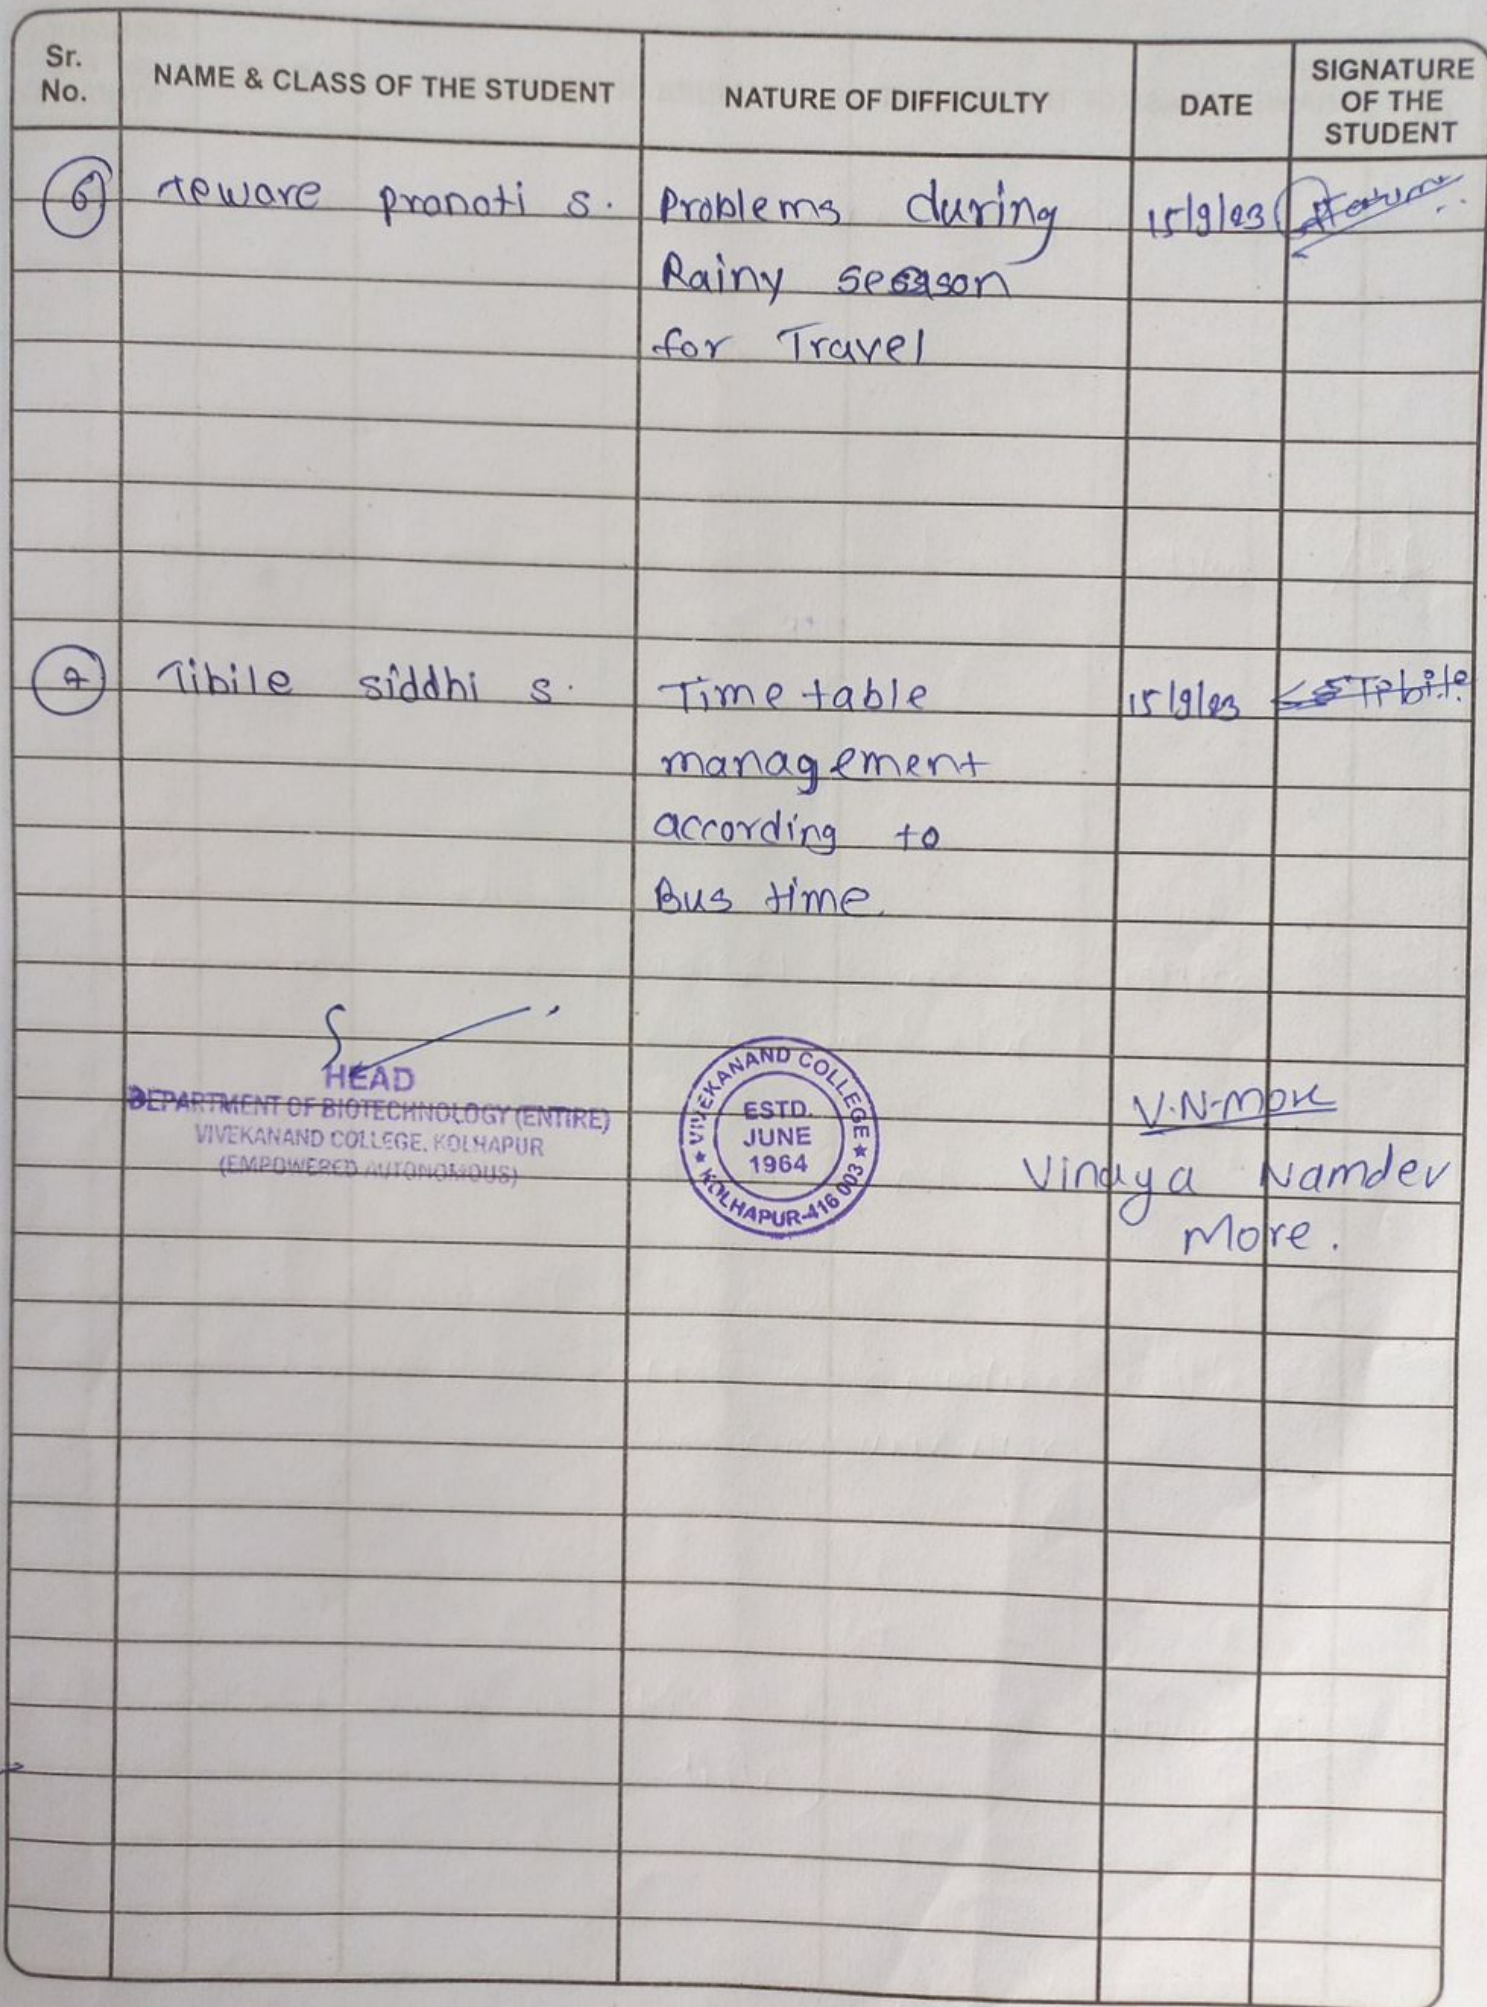 Sr. No.
NAME & CLASS OF THE STUDENT
NATURE OF DIFFICULTY
DATE
SIGNATURE OF THE STUDENT
6 Teware pranoti s. Problems during 15/9/23
Rainy season
for Travel
7 Tibile siddhi s. Time table 15/9/23 STibile
management
according to
Bus time.
HEAD
DEPARTMENT OF BIOTECHNOLOGY (ENTIRE)
VIVEKANAND COLLEGE, KOLHAPUR
(EMPOWERED AUTONOMOUS)
VIVEKANAND COLLEGE
ESTD.
JUNE
1964
KOLHAPUR-416 003
V.N-More
Vinaya Namdev
More.